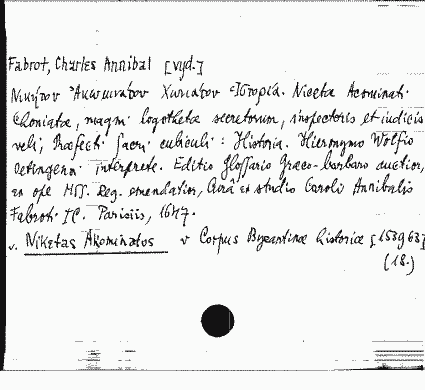 Fabrot, Charles Annibal [vyd.]
Νικήτου Ἀκωμινάτου Χωνιάτου Ἱστορία. Nicetæ Acominati
Choniatæ, magni logothetæ secretorum, inspectoris et iudicis
veli, Præfecti sacri cubiculi: Historia. Hieronymo Wolfio
Oetingensi interprete. Editio Glossario Græco-barbaro auctior,
ex ope MSS. Reg. emendatior, Curâ et studio Caroli Annibalis
Fabroti IC. Parisiis, 1647.
v. Niketas Akominatos v Corpus Byzantinæ historiæ [153963]
(18.)